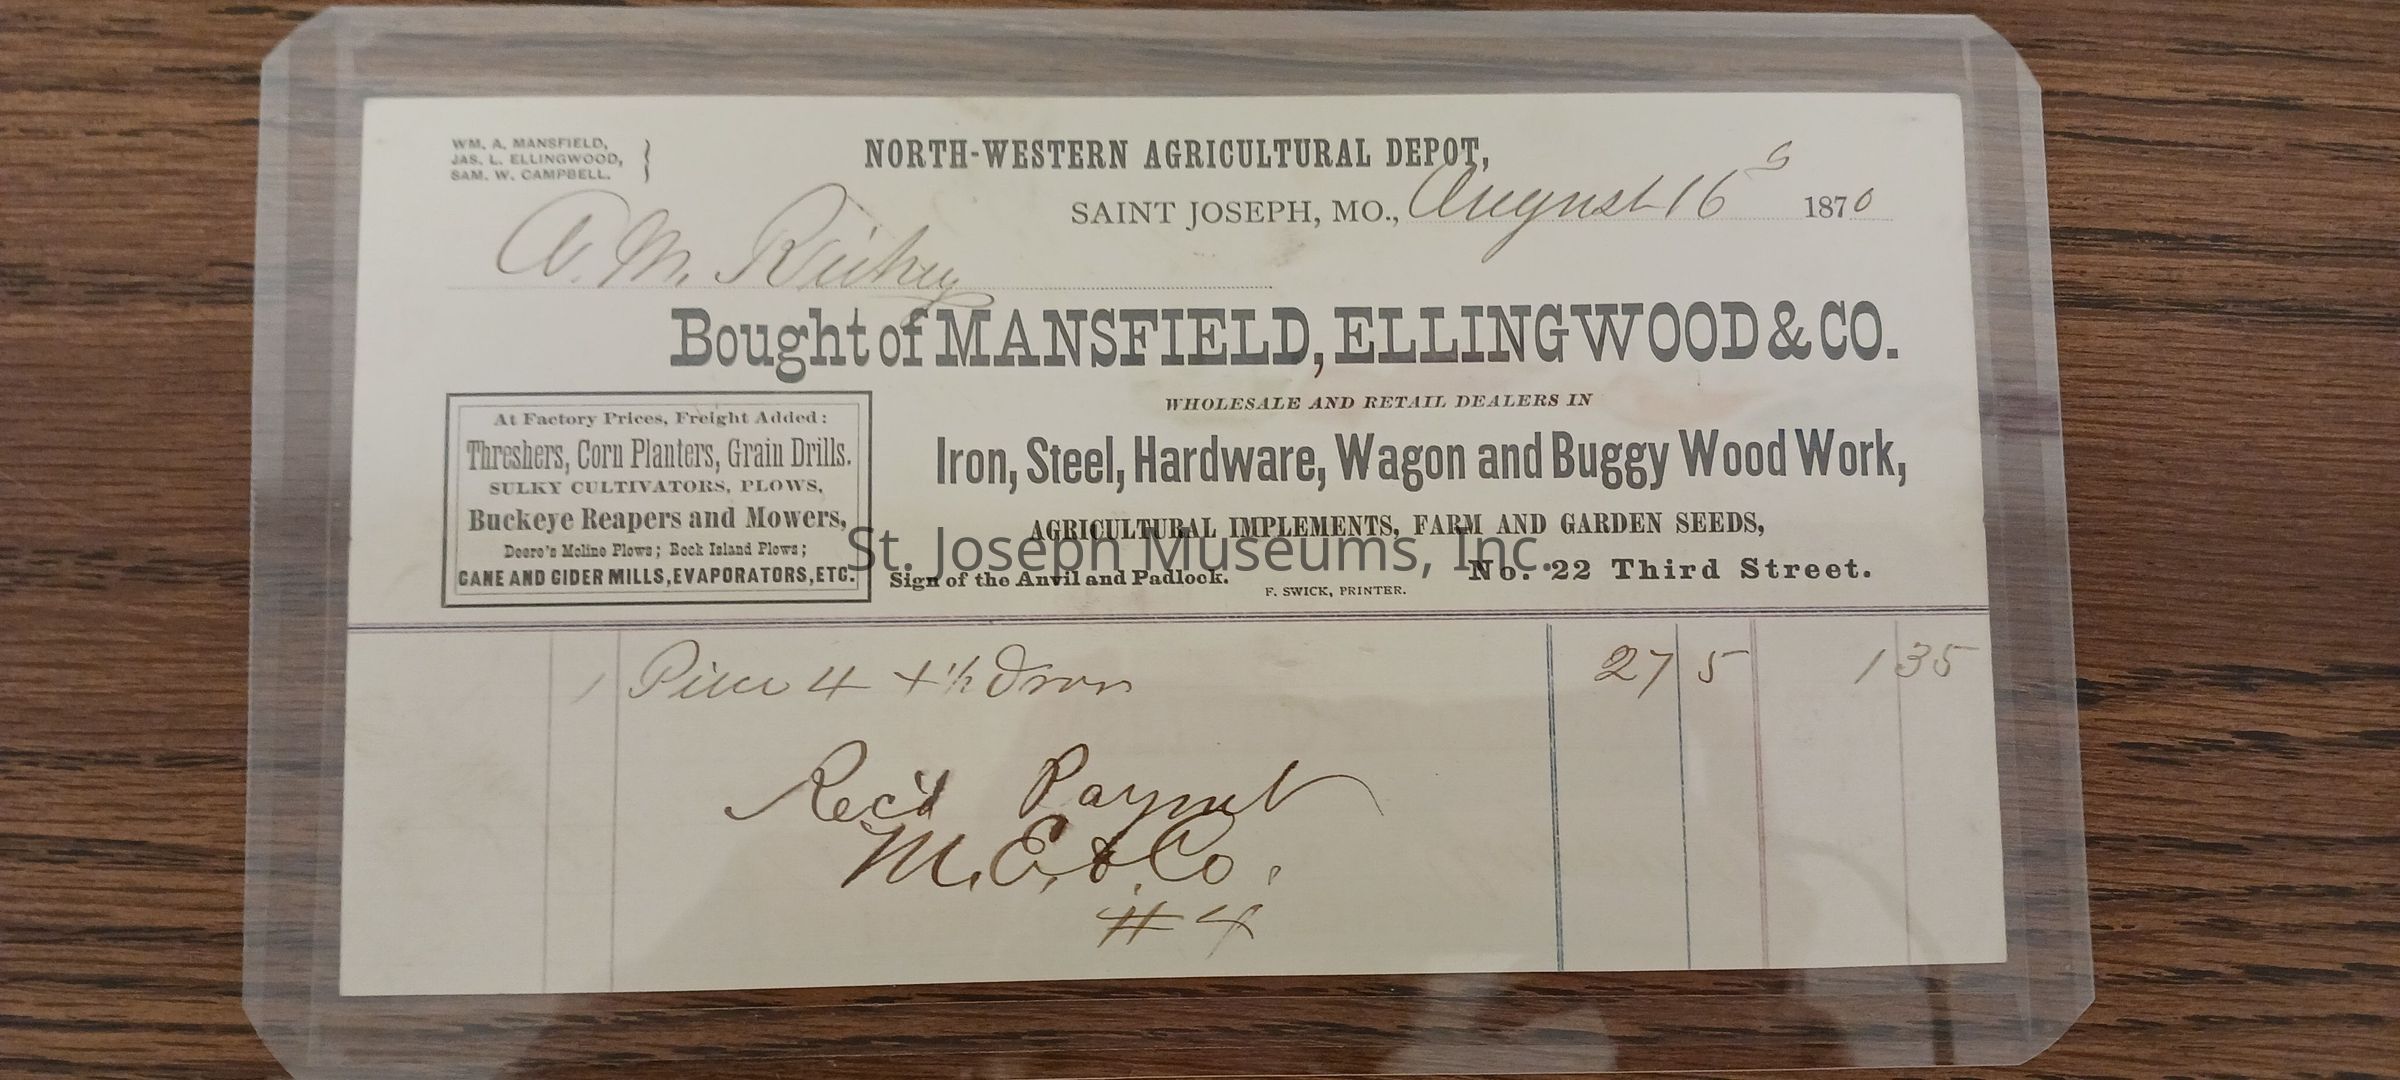 WM. A. MANSFIELD,
JAS. L. ELLINGWOOD,
SAM. W. CAMPBELL.
NORTH-WESTERN AGRICULTURAL DEPOT,
SAINT JOSEPH, MO., August 16 1870
A. M. Richey
Bought of MANSFIELD, ELLINGWOOD & CO.
WHOLESALE AND RETAIL DEALERS IN
Iron, Steel, Hardware, Wagon and Buggy Wood Work,
AGRICULTURAL IMPLEMENTS, FARM AND GARDEN SEEDS,
Sign of the Anvil and Padlock. No. 22 Third Street.
F. SWICK, PRINTER.
At Factory Prices, Freight Added:
Threshers, Corn Planters, Grain Drills.
SULKY CULTIVATORS, PLOWS,
Buckeye Reapers and Mowers,
Deere's Moline Plows; Rock Island Plows;
CANE AND CIDER MILLS, EVAPORATORS, ETC.
St. Joseph Museums, Inc.
1 Piece 4 + 1/2 Iron 27 5 1 35
Rec'd Paymet
M. E. & Co.
# 4